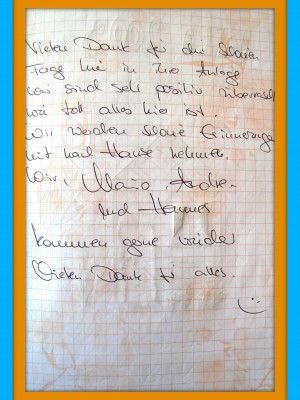 Vielen Dank für die schönen
Tage hier in ihrer Anlage
wir sind sehr positiv überrascht
wie toll alles hier ist.
Wir werden schöne Erinnerungen
mit nach Hause nehmen.
Wir, Mario, Andre
und Hannes
kommen gerne wieder
Vielen Dank für alles